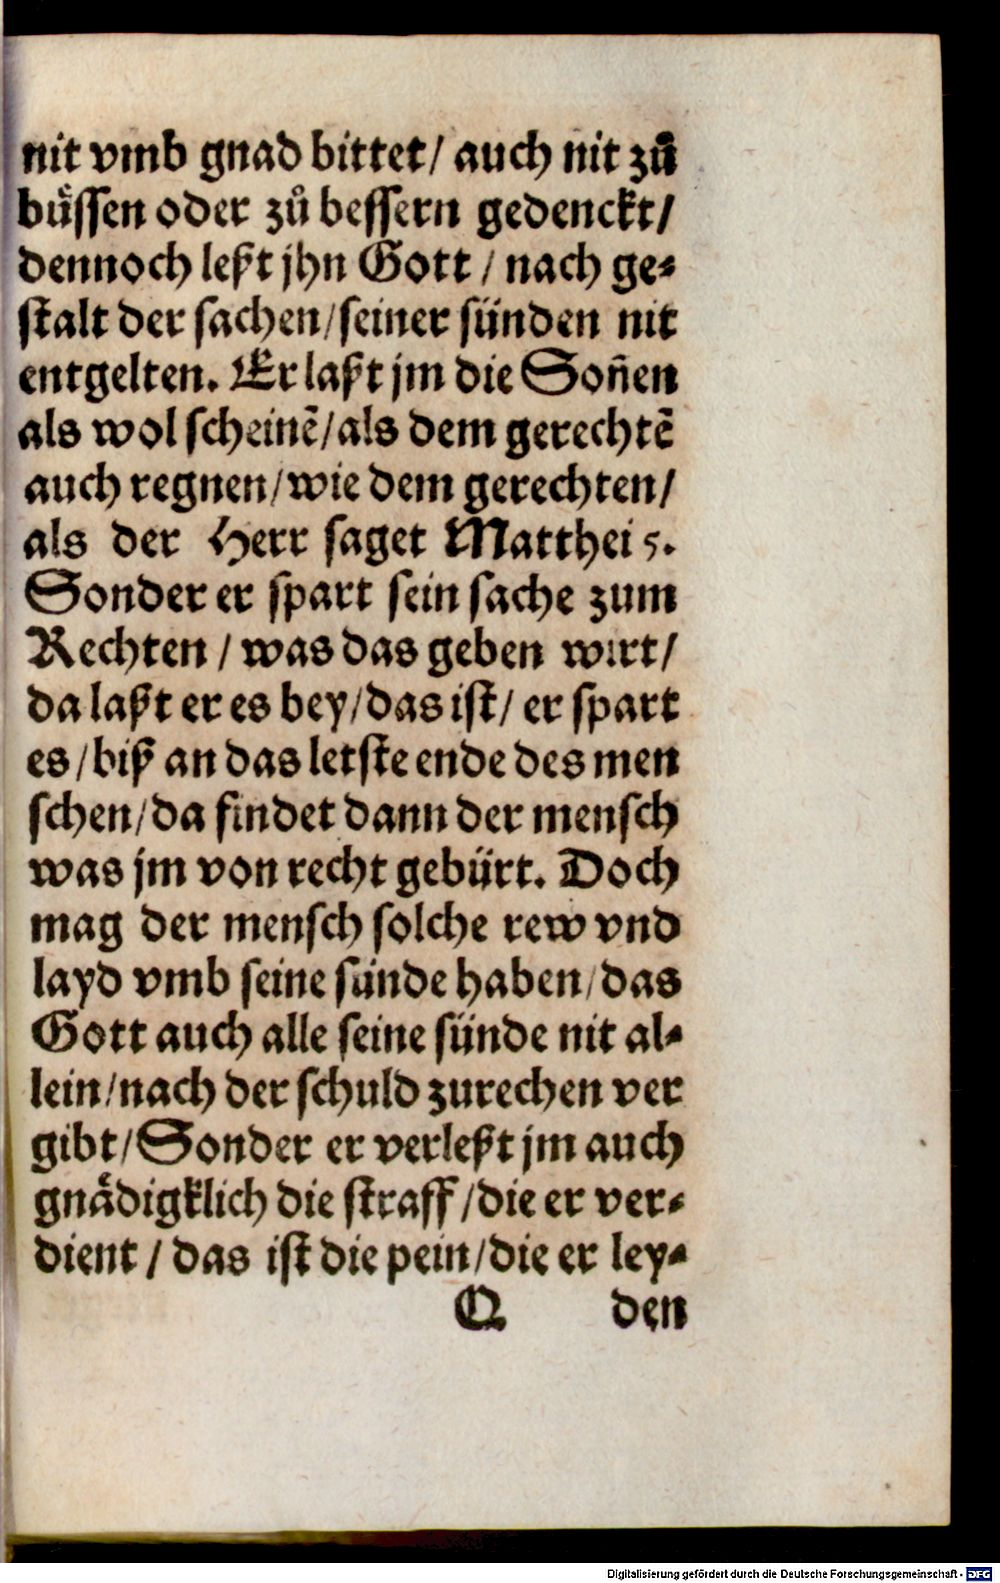 nit vmb gnad bittet/ auch nit zů
bůͤssen oder zů bessern gedenckt/
dennoch leßt jhn Gott / nach ge⸗
stalt der sachen/seiner sünden nit
entgelten. Er laßt jm die Soñen
als wol scheinẽ/als dem gerechtẽ
auch regnen/wie dem gerechten/
als der Herr saget Matthei 5.
Sonder er spart sein sache zum
Rechten / was das geben wirt/
da laßt er es bey/das ist/ er spart
es/biß an das letste ende des men
schen/da findet dann der mensch
was jm von recht gebürt. Doch
mag der mensch solche rew vnd
layd vmb seine sünde haben/das
Gott auch alle seine sünde nit al⸗
lein/nach der schuld zurechen ver
gibt/Sonder er verleßt jm auch
gnaͤdigklich die straff/die er ver⸗
dient / das ist die pein/die er ley⸗
Q den
Digitalisierung gefördert durch die Deutsche Forschungsgemeinschaft - DFG